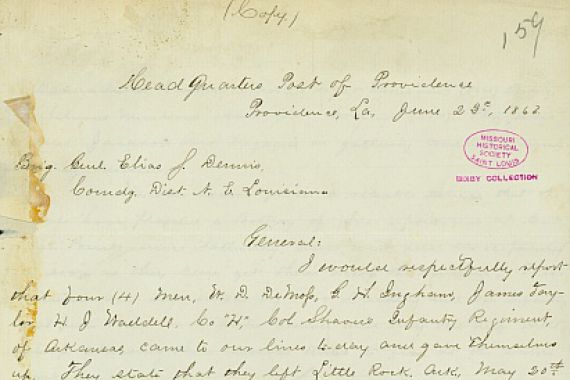 (Copy)
159
Head Quarters Post of Providence
Providence, La, June 23d, 1863.
MISSOURI
HISTORICAL
SOCIETY
SAINT LOUIS
BIXBY COLLECTION
Brig. Genl. Elias S. Dennis,
Comdg. Dist. N. E. Louisiana
General:
I would respectfully report
that four (4) men, W. D. DeMoss, G. H. Ingham, James Tay-
lor, H J Waddell, Co "H," Col Shavers Infantry Regiment,
of Arkansas, came to our lines to day and gave themselves
up. They state that they left Little Rock, Ark, May 20th